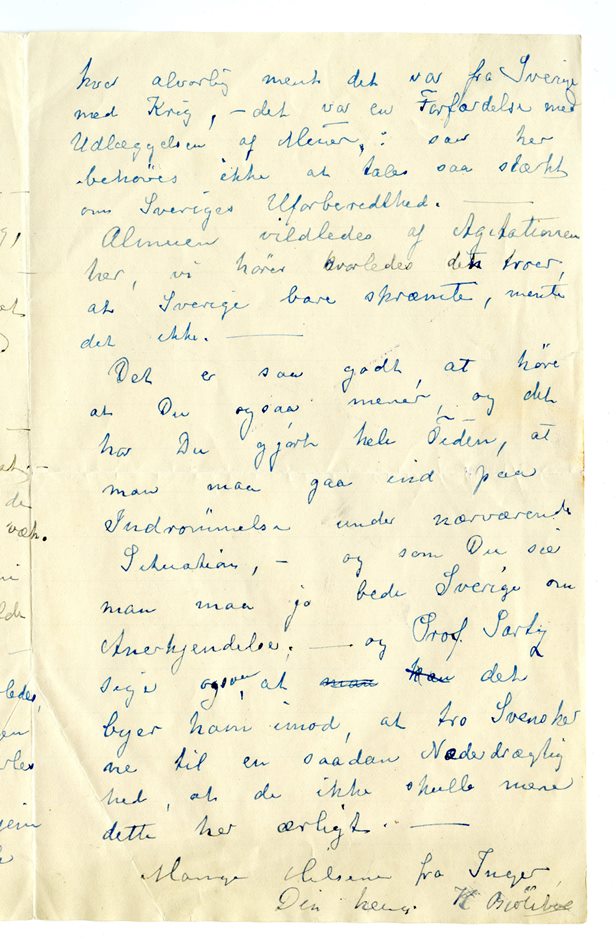 hvor alvorlig ment det var fra Sverige
med Krig, – det var en Forfærdelse med
Udlæggelsen af Miner, : saa her
behøves ikke at tales saa stærkt
om Sveriges Uforberedthed. —
Almuen vildledes af Agitationen
her, vi hører hvorledes den troer,
at Sverige bare skræmte, mente
det ikke. —
Det er saa godt, at høre
at Du ogsaa mener, og det
har Du gjort hele Tiden, at
man maa gaa ind paa
Indrømmelse under nærværende
Situation, – og som Du sie
man maa jo bede Sverige om
Anerkjendelse. — og Prof
sige ogsaa, at man kan det
byer ham imod, at tro Svensker
ne til en saadan Nederdrægtig
hed, at de ikke skulle mene
dette her ærligt. —
Mange Hilsener fra Inger
Din heng. K